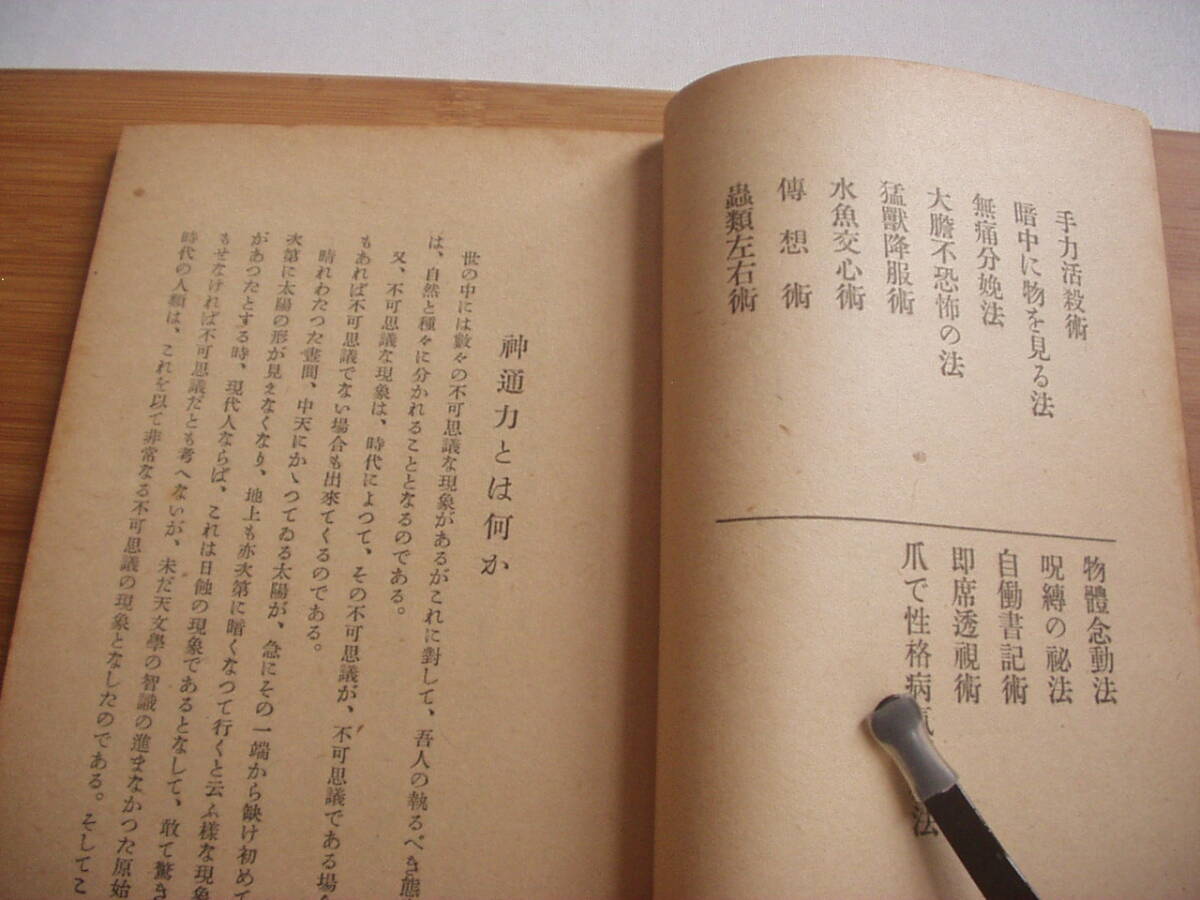 手力活殺術
暗中に物を見る法
無痛分娩法
大膽不恐怖の法
猛獸降服術
水魚交心術
傳想術
蟲類左右術
物體念動法
呪縛の祕法
自働書記術
即席透視術
爪で性格病氣
法
神通力とは何か
世の中には數々の不可思議な現象があるがこれに對して、吾人の執るべき態
は、自然と種々に分かれることとなるのである。
又、不可思議な現象は、時代によつて、その不可思議が、不可思議である場
もあれば不可思議でない場合も出來てくるのである。
晴れわたつた晝間、中天にかゝつてゐる太陽が、急にその一端から缺け初めて
次第に太陽の形が見えなくなり、地上も亦次第に暗くなつて行くと云ふ樣な現象
があつたとする時、現代人ならば、これは日蝕の現象であるとなして、敢て驚き
もせなければ不可思議だとも考へないが、未だ天文學の智識の進まなかつた原始
時代の人類は、これを以て非常なる不可思議の現象となしたのである。そしてこ